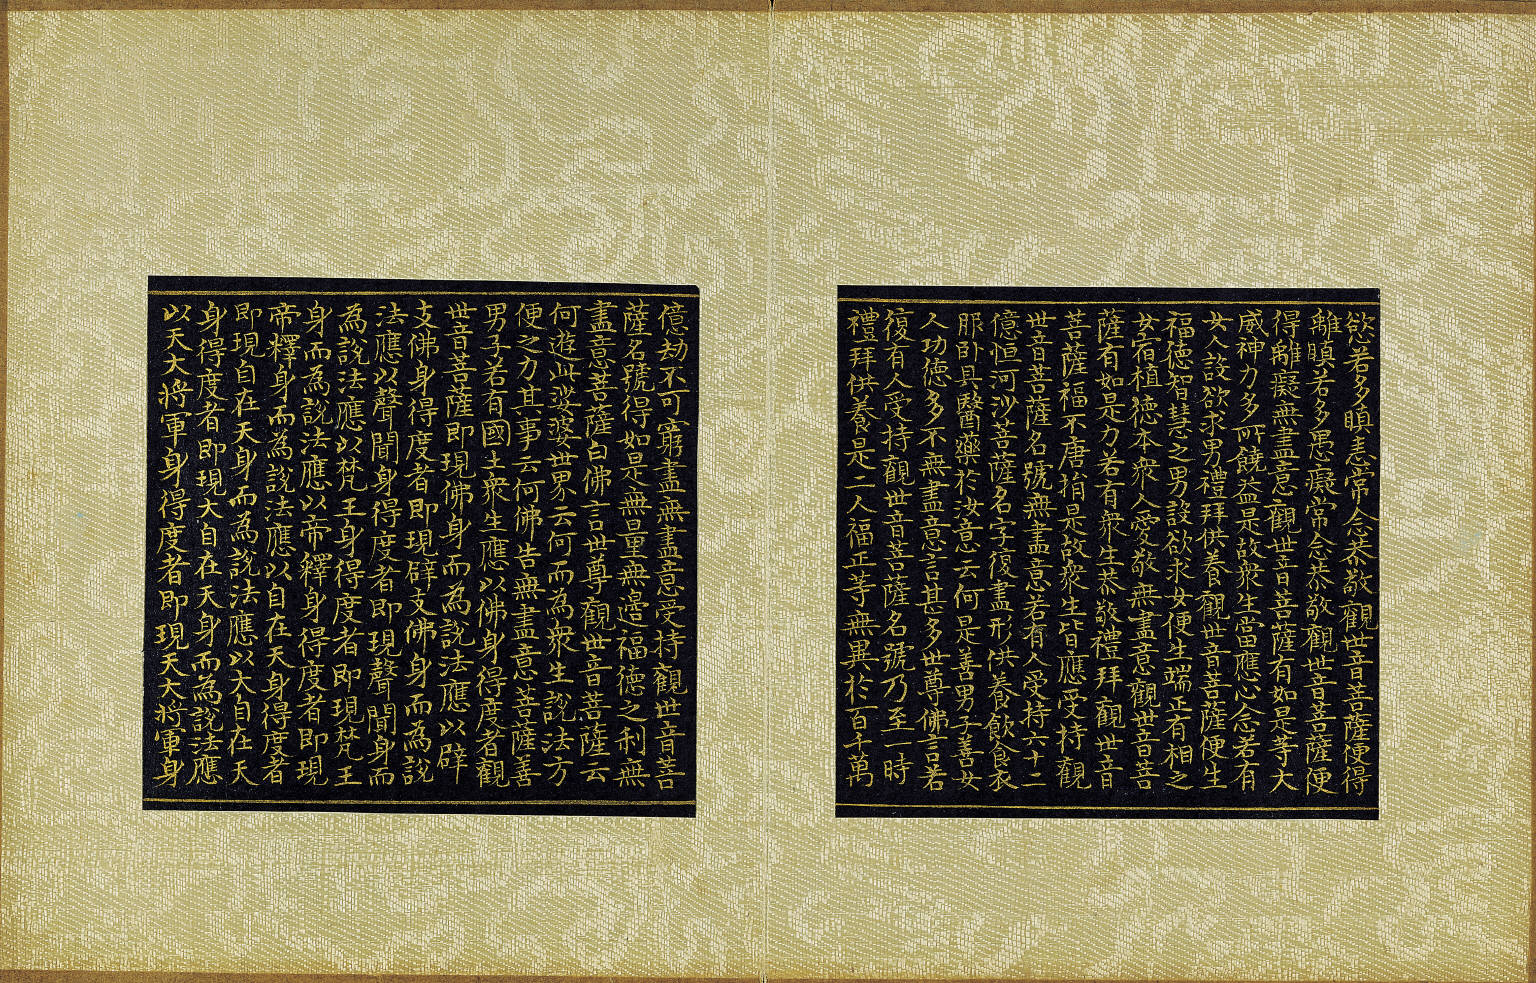 欲若多瞋恚常念恭敬觀世音菩薩便得
離瞋若多愚癡常念恭敬觀世音菩薩便
得離癡無盡意觀世音菩薩有如是等大
威神力多所饒益是故衆生當應心念若有
女人設欲求男禮拜供養觀世音菩薩便生
福德智慧之男設欲求女便生端正有相之
女宿植德本衆人愛敬無盡意觀世音菩
薩有如是力若有衆生恭敬禮拜觀世音
菩薩福不唐捐是故衆生皆應受持觀
世音菩薩名號無盡意若有人受持六十二
億恒河沙菩薩名字復盡形供養飲食衣
服卧具醫藥於汝意云何是善男子善女
人功德多不無盡意言甚多世尊佛言若
復有人受持觀世音菩薩名號乃至一時
禮拜供養是二人福正等無異於百千萬
億劫不可窮盡無盡意受持觀世音菩
薩名號得如是無量無邊福德之利無
盡意菩薩白佛言世尊觀世音菩薩云
何遊此娑婆世界云何而為衆生說法方
便之力其事云何佛告無盡意菩薩善
男子若有國土衆生應以佛身得度者觀
世音菩薩即現佛身而為說法應以辟
支佛身得度者即現辟支佛身而為說
法應以聲聞身得度者即現聲聞身而
為說法應以梵王身得度者即現梵王
身而為說法應以帝釋身得度者即現
帝釋身而為說法應以自在天身得度者
即現自在天身而為說法應以大自在天
身得度者即現大自在天身而為說法應
以天大將軍身得度者即現天大將軍身